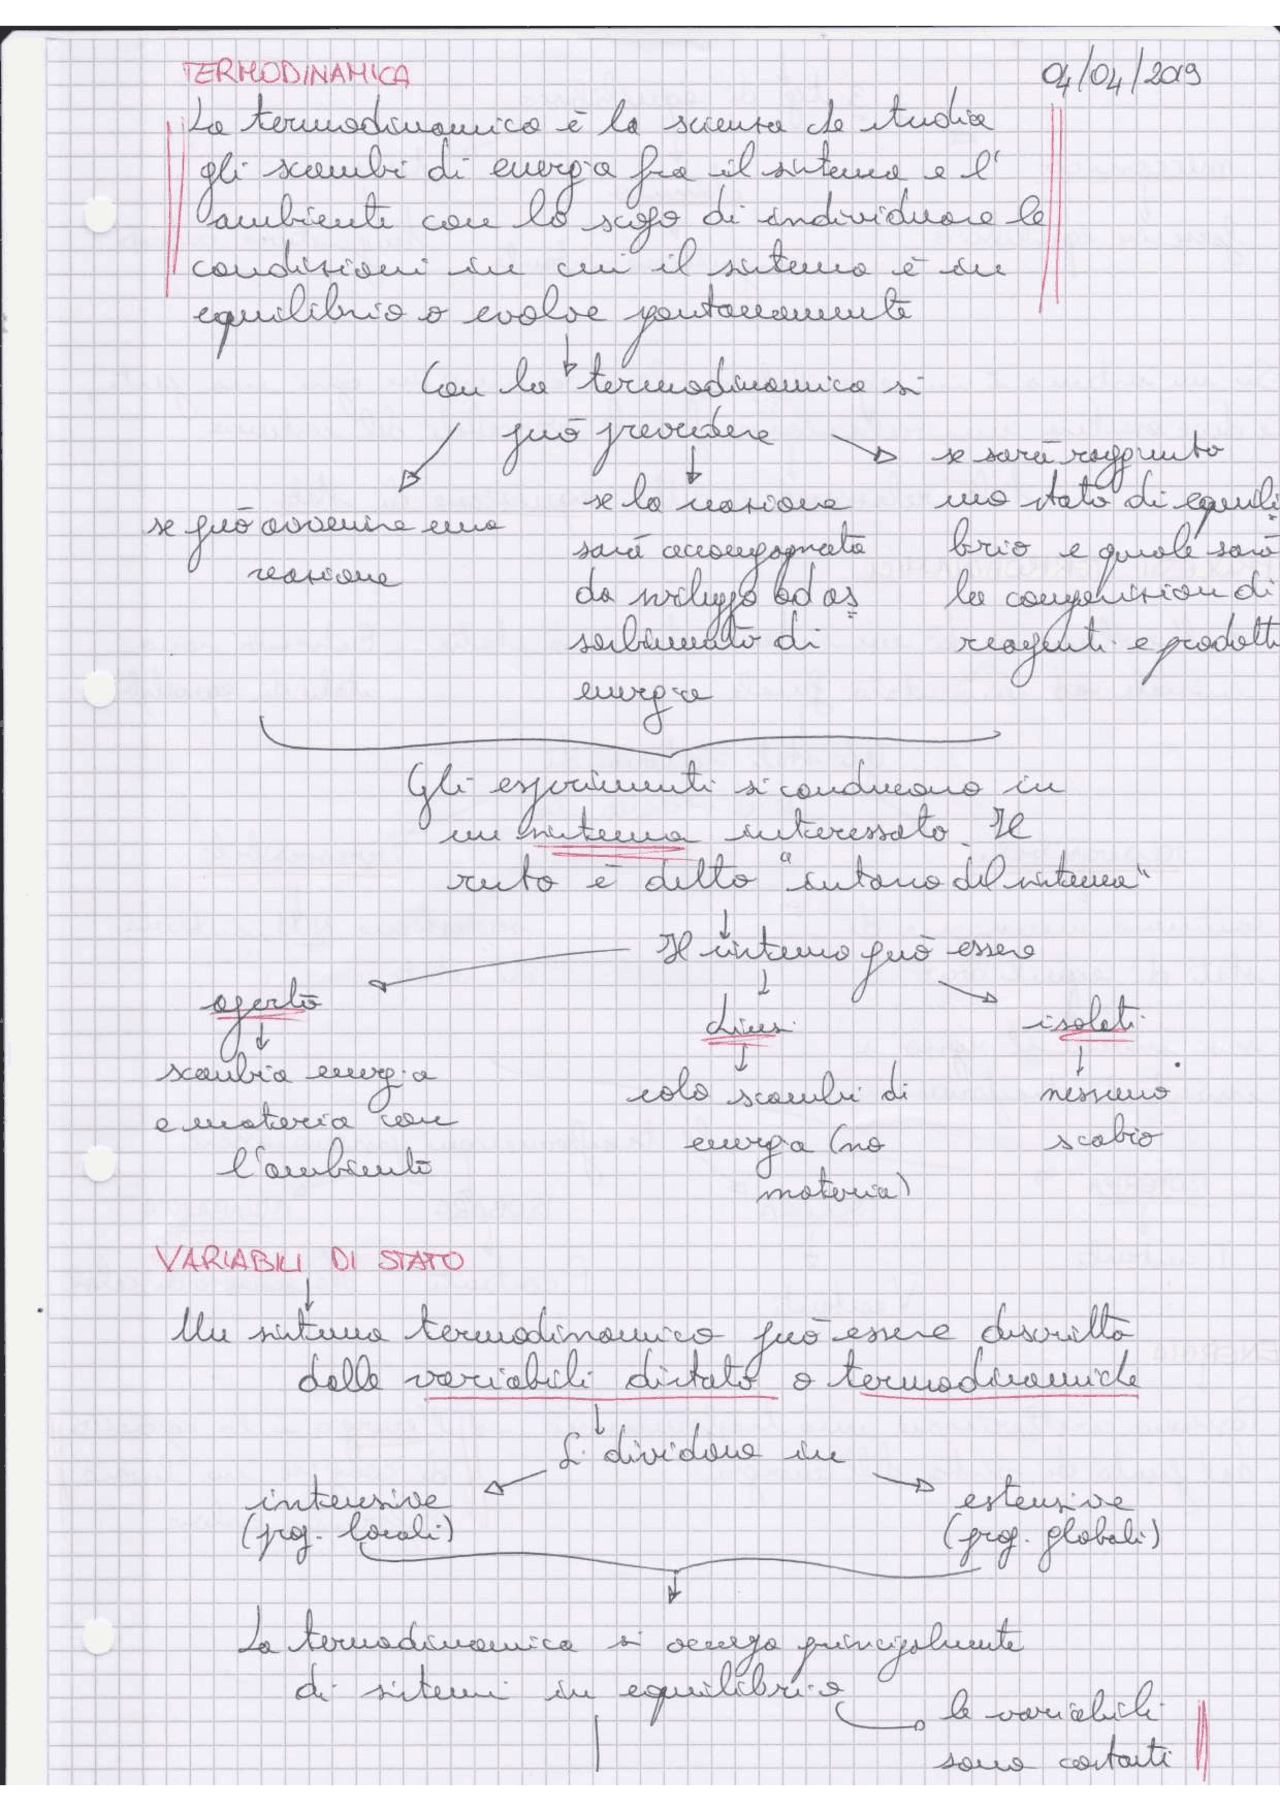 TERMODINAMICA
04/04/2019
La termodinamica è la scienza che studia
gli scambi di energia fra il sistema e l'
ambiente con lo scopo di individuare le
condizioni in cui il sistema è in
equilibrio o evolve spontaneamente
Con la termodinamica si
può prevedere
se può avvenire una
reazione
se la reazione
sarà accompagnata
da sviluppo od as
sorbimento di
energia
se sarà raggiunto
uno stato di equili
brio e quale sarà
la composizion di
reagenti e prodotti
Gli esperimenti si conducono in
un sistema interessato. Il
resto è detto "intorno del sistema"
Il sistema può essere
aperto
scambia energia
e materia con
l'ambiente
chiusi
solo scambi di
energia (no
materia)
isolati
nessuno
scabio
VARIABILI DI STATO
Un sistema termodinamico può essere descritto
dalle variabili di stato o termodinamiche
Si dividono in
intensive
(prop. locali)
estensive
(prop. globali)
La termodinamica si occupa principalmente
di sistemi in equilibrio
le variabili
sono costanti